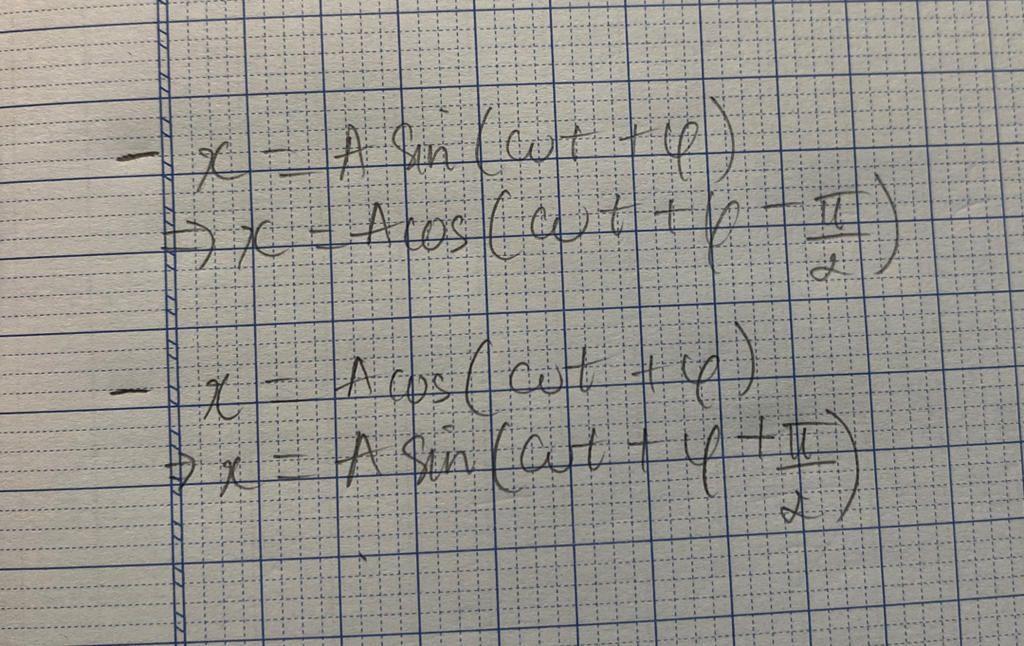 - x = A sin(ωt + φ)
⇒ x = A cos(ωt + φ - π/2)
- x = A cos(ωt + φ)
⇒ x = A sin(ωt + φ + π/2)